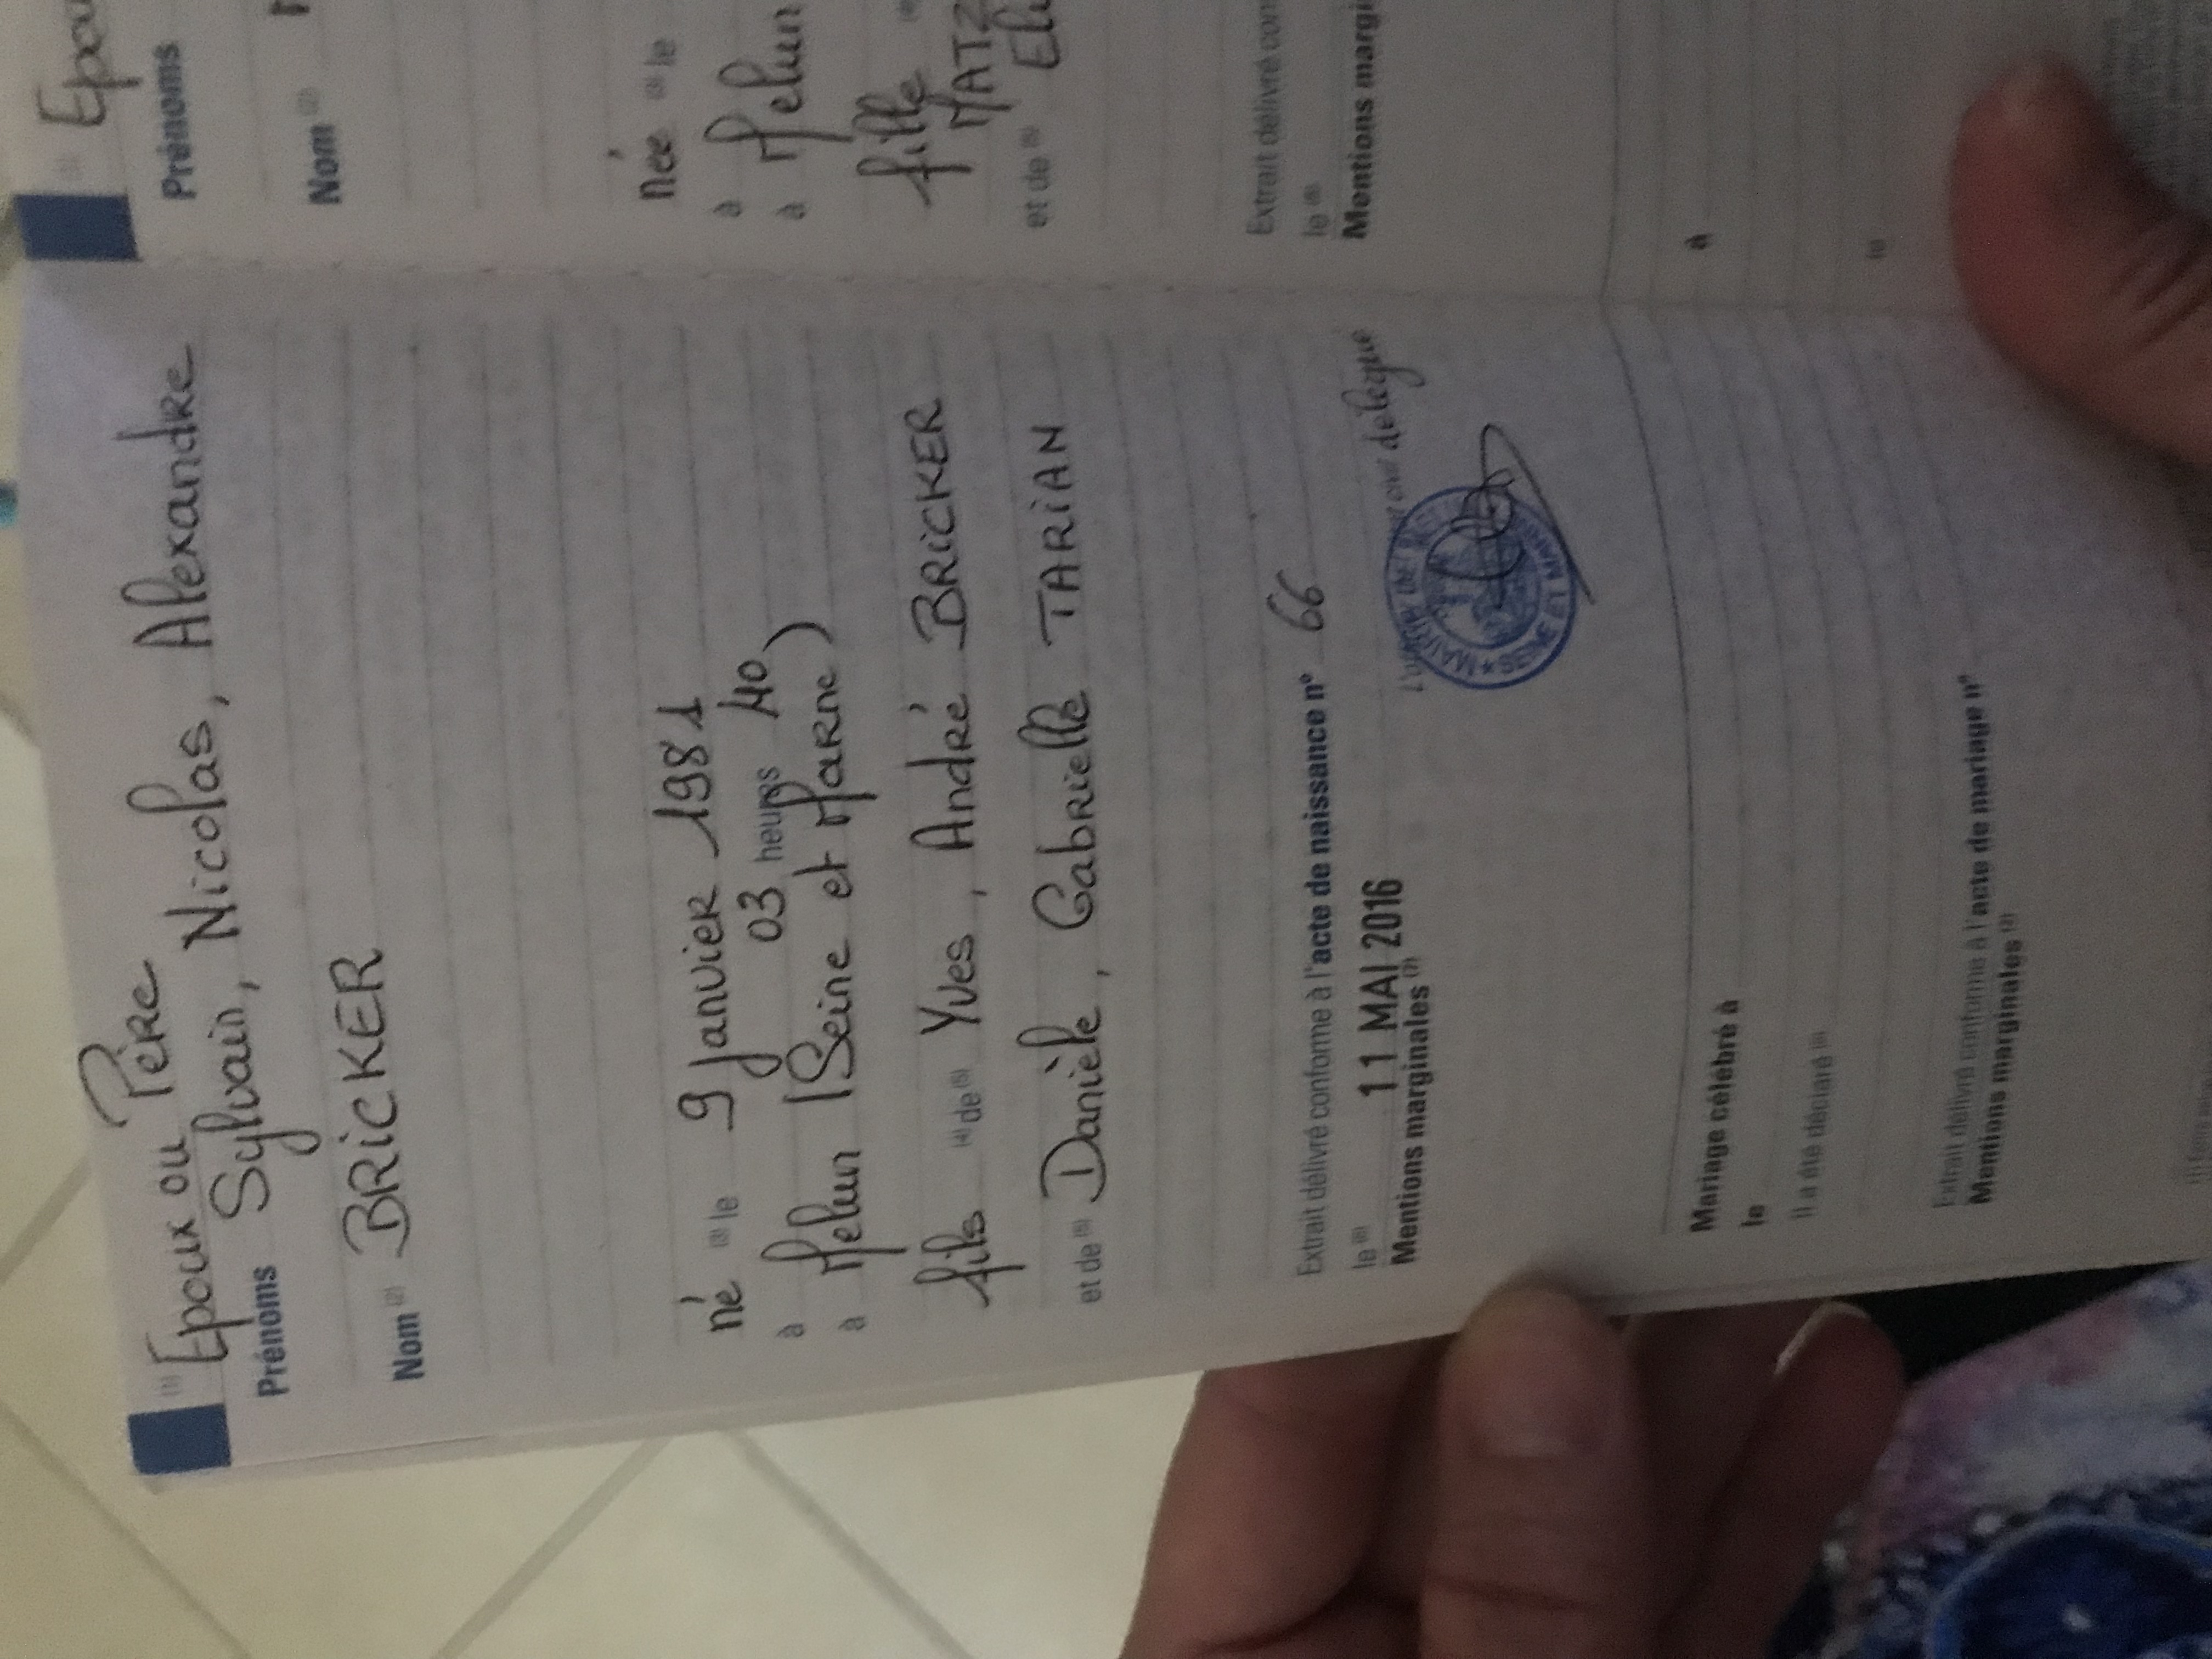 Epoux ou Père
Prénoms Sylvain, Nicolas, Alexandre
Nom (2) BRICKER
né (3) le 9 Janvier 1981
à 03 heures 40
à Melun (Seine et Marne)
fils (4) de (5) Yves, André BRICKER
et de (5) Danièle, Gabrielle TARIAN
Extrait délivré conforme à l'acte de naissance n° 66
le (6) 11 MAI 2016
délégué
Mentions marginales (7)
MAIRIE
SEINE ET MARNE
Mariage célébré à
le
Il a été déclaré (8)
Extrait délivré conforme à l'acte de mariage n°
Mentions marginales (7)
Epou
Prénoms
Nom (2)
née (3) le
à
à Melun
fille
MATZ
et de (5) Elu
Extrait délivré con
le (6)
Mentions margi
à
le